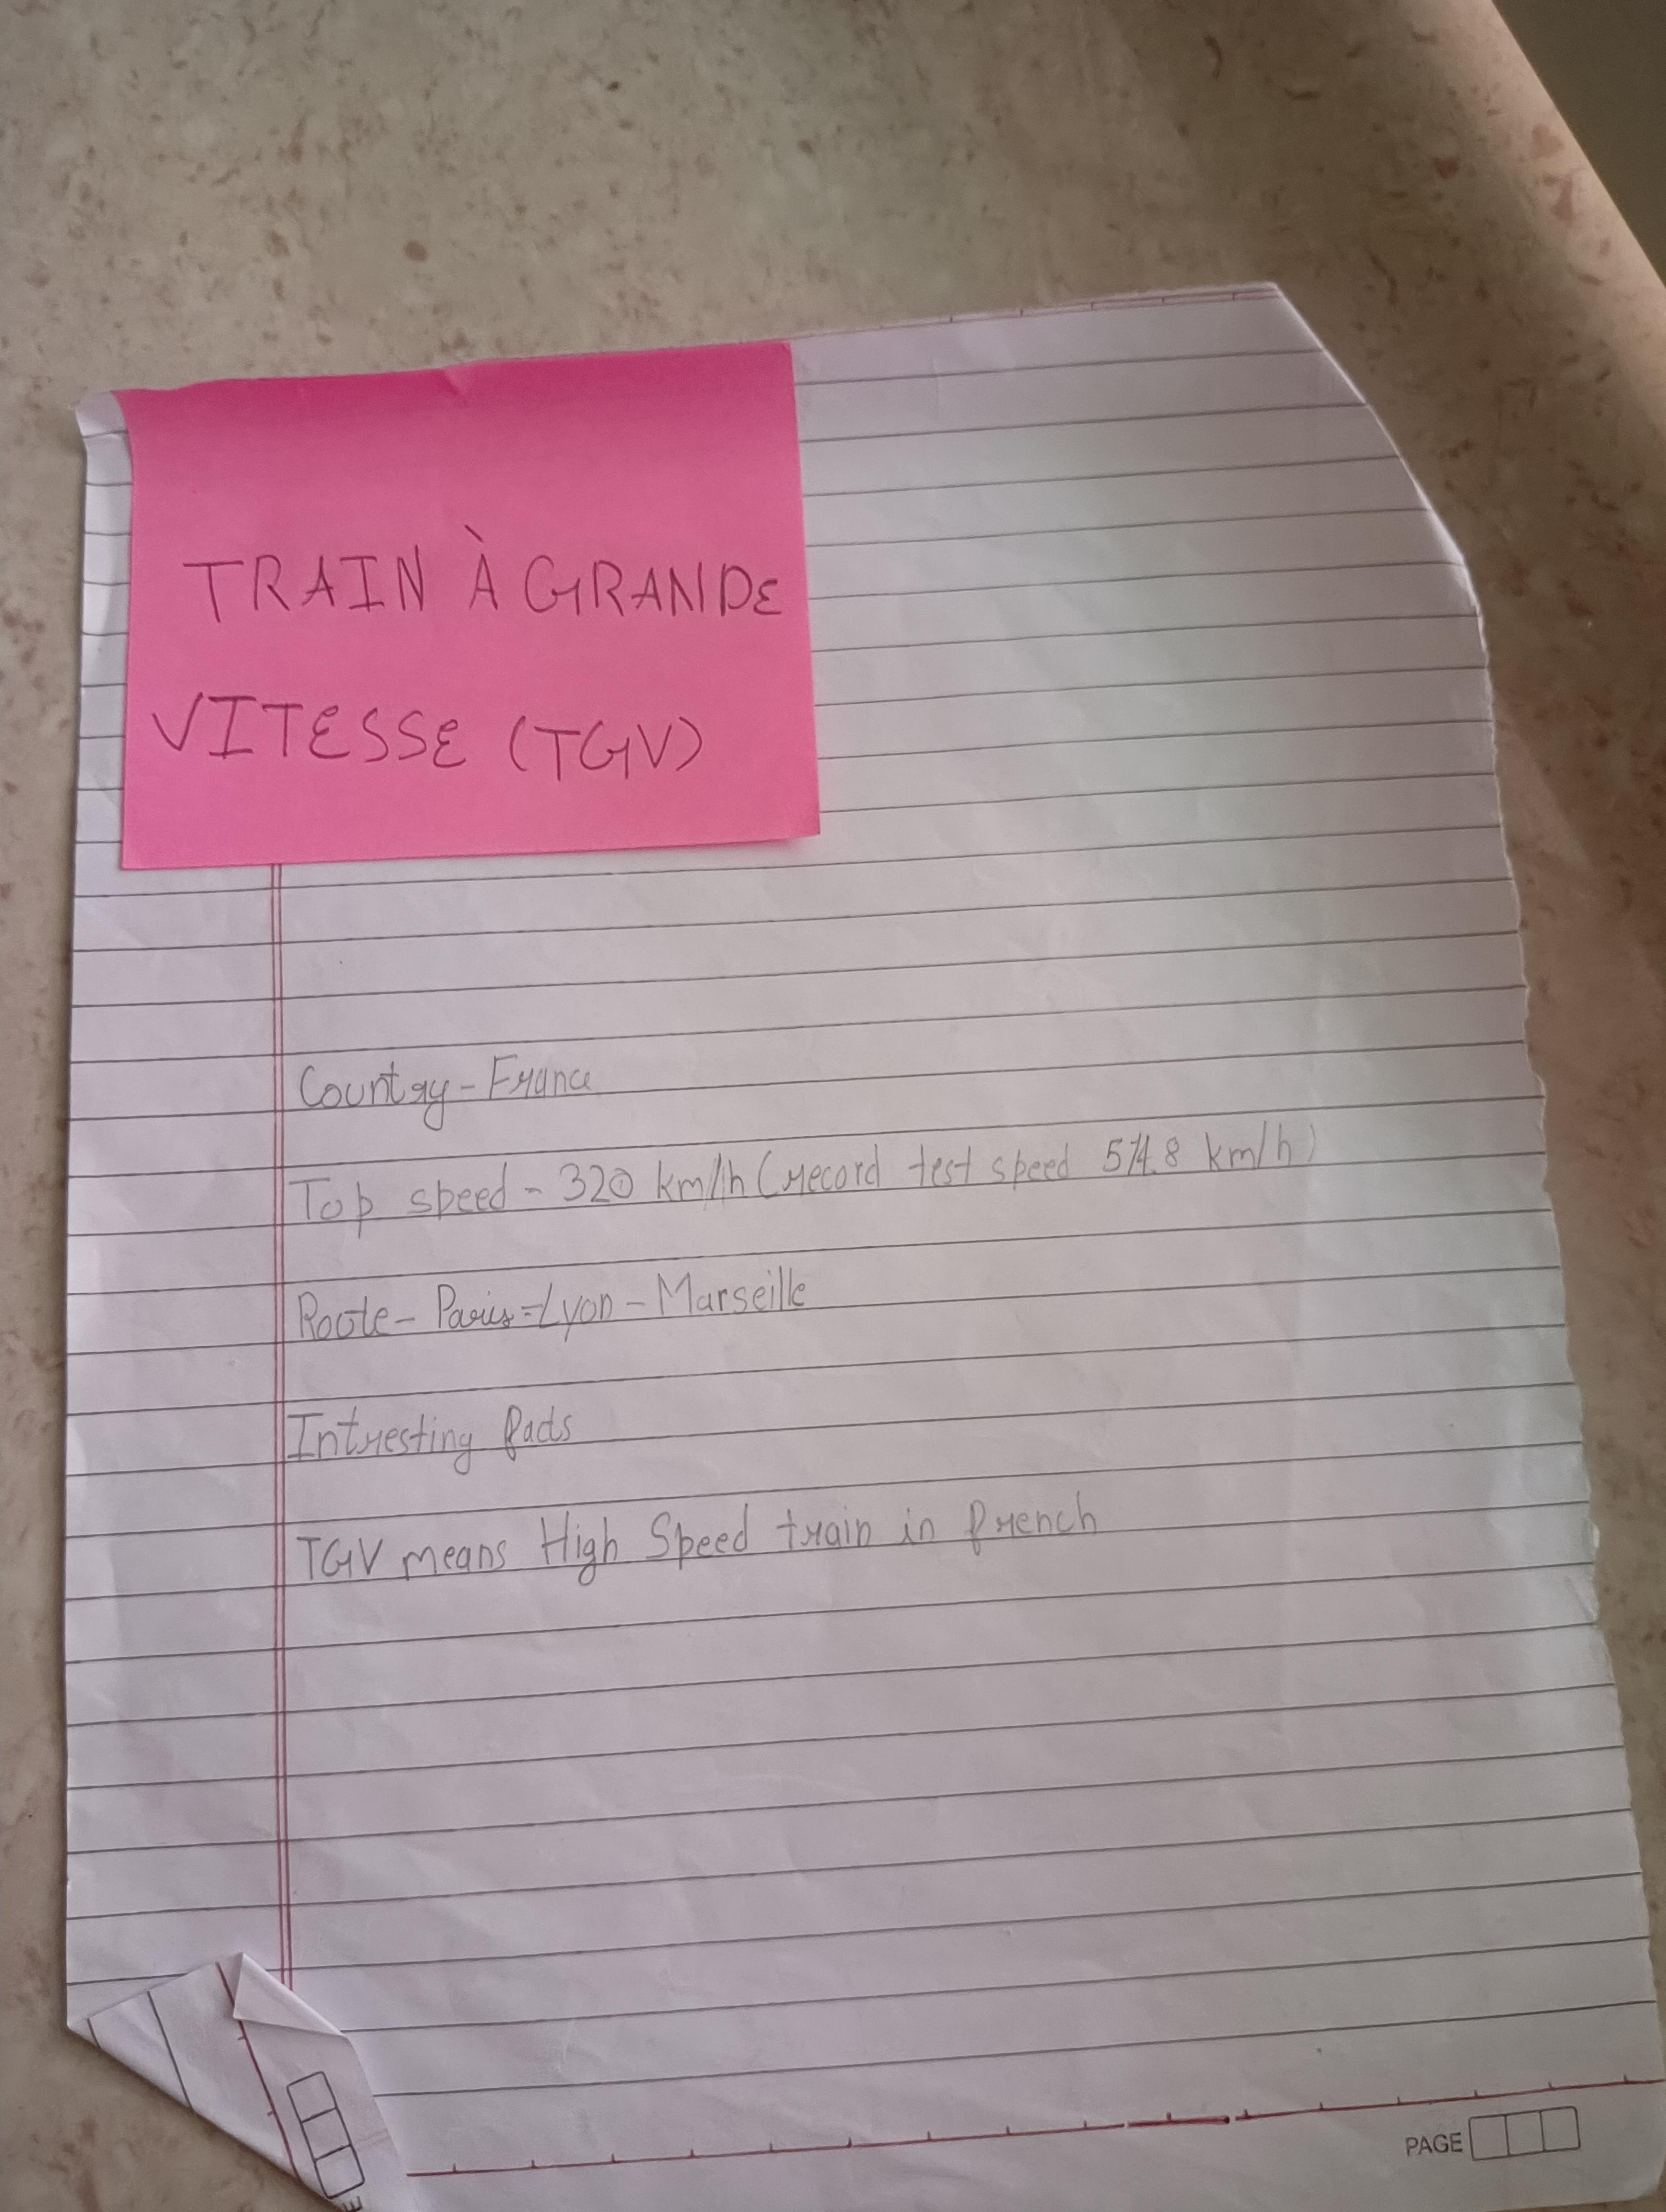 TRAIN À GRANDE
VITESSE (TGV)
Country - France
Top speed - 320 km/h (record test speed 574.8 km/h)
Route - Paris - Lyon - Marseille
Intresting facts
TGV means High Speed train in french
PAGE